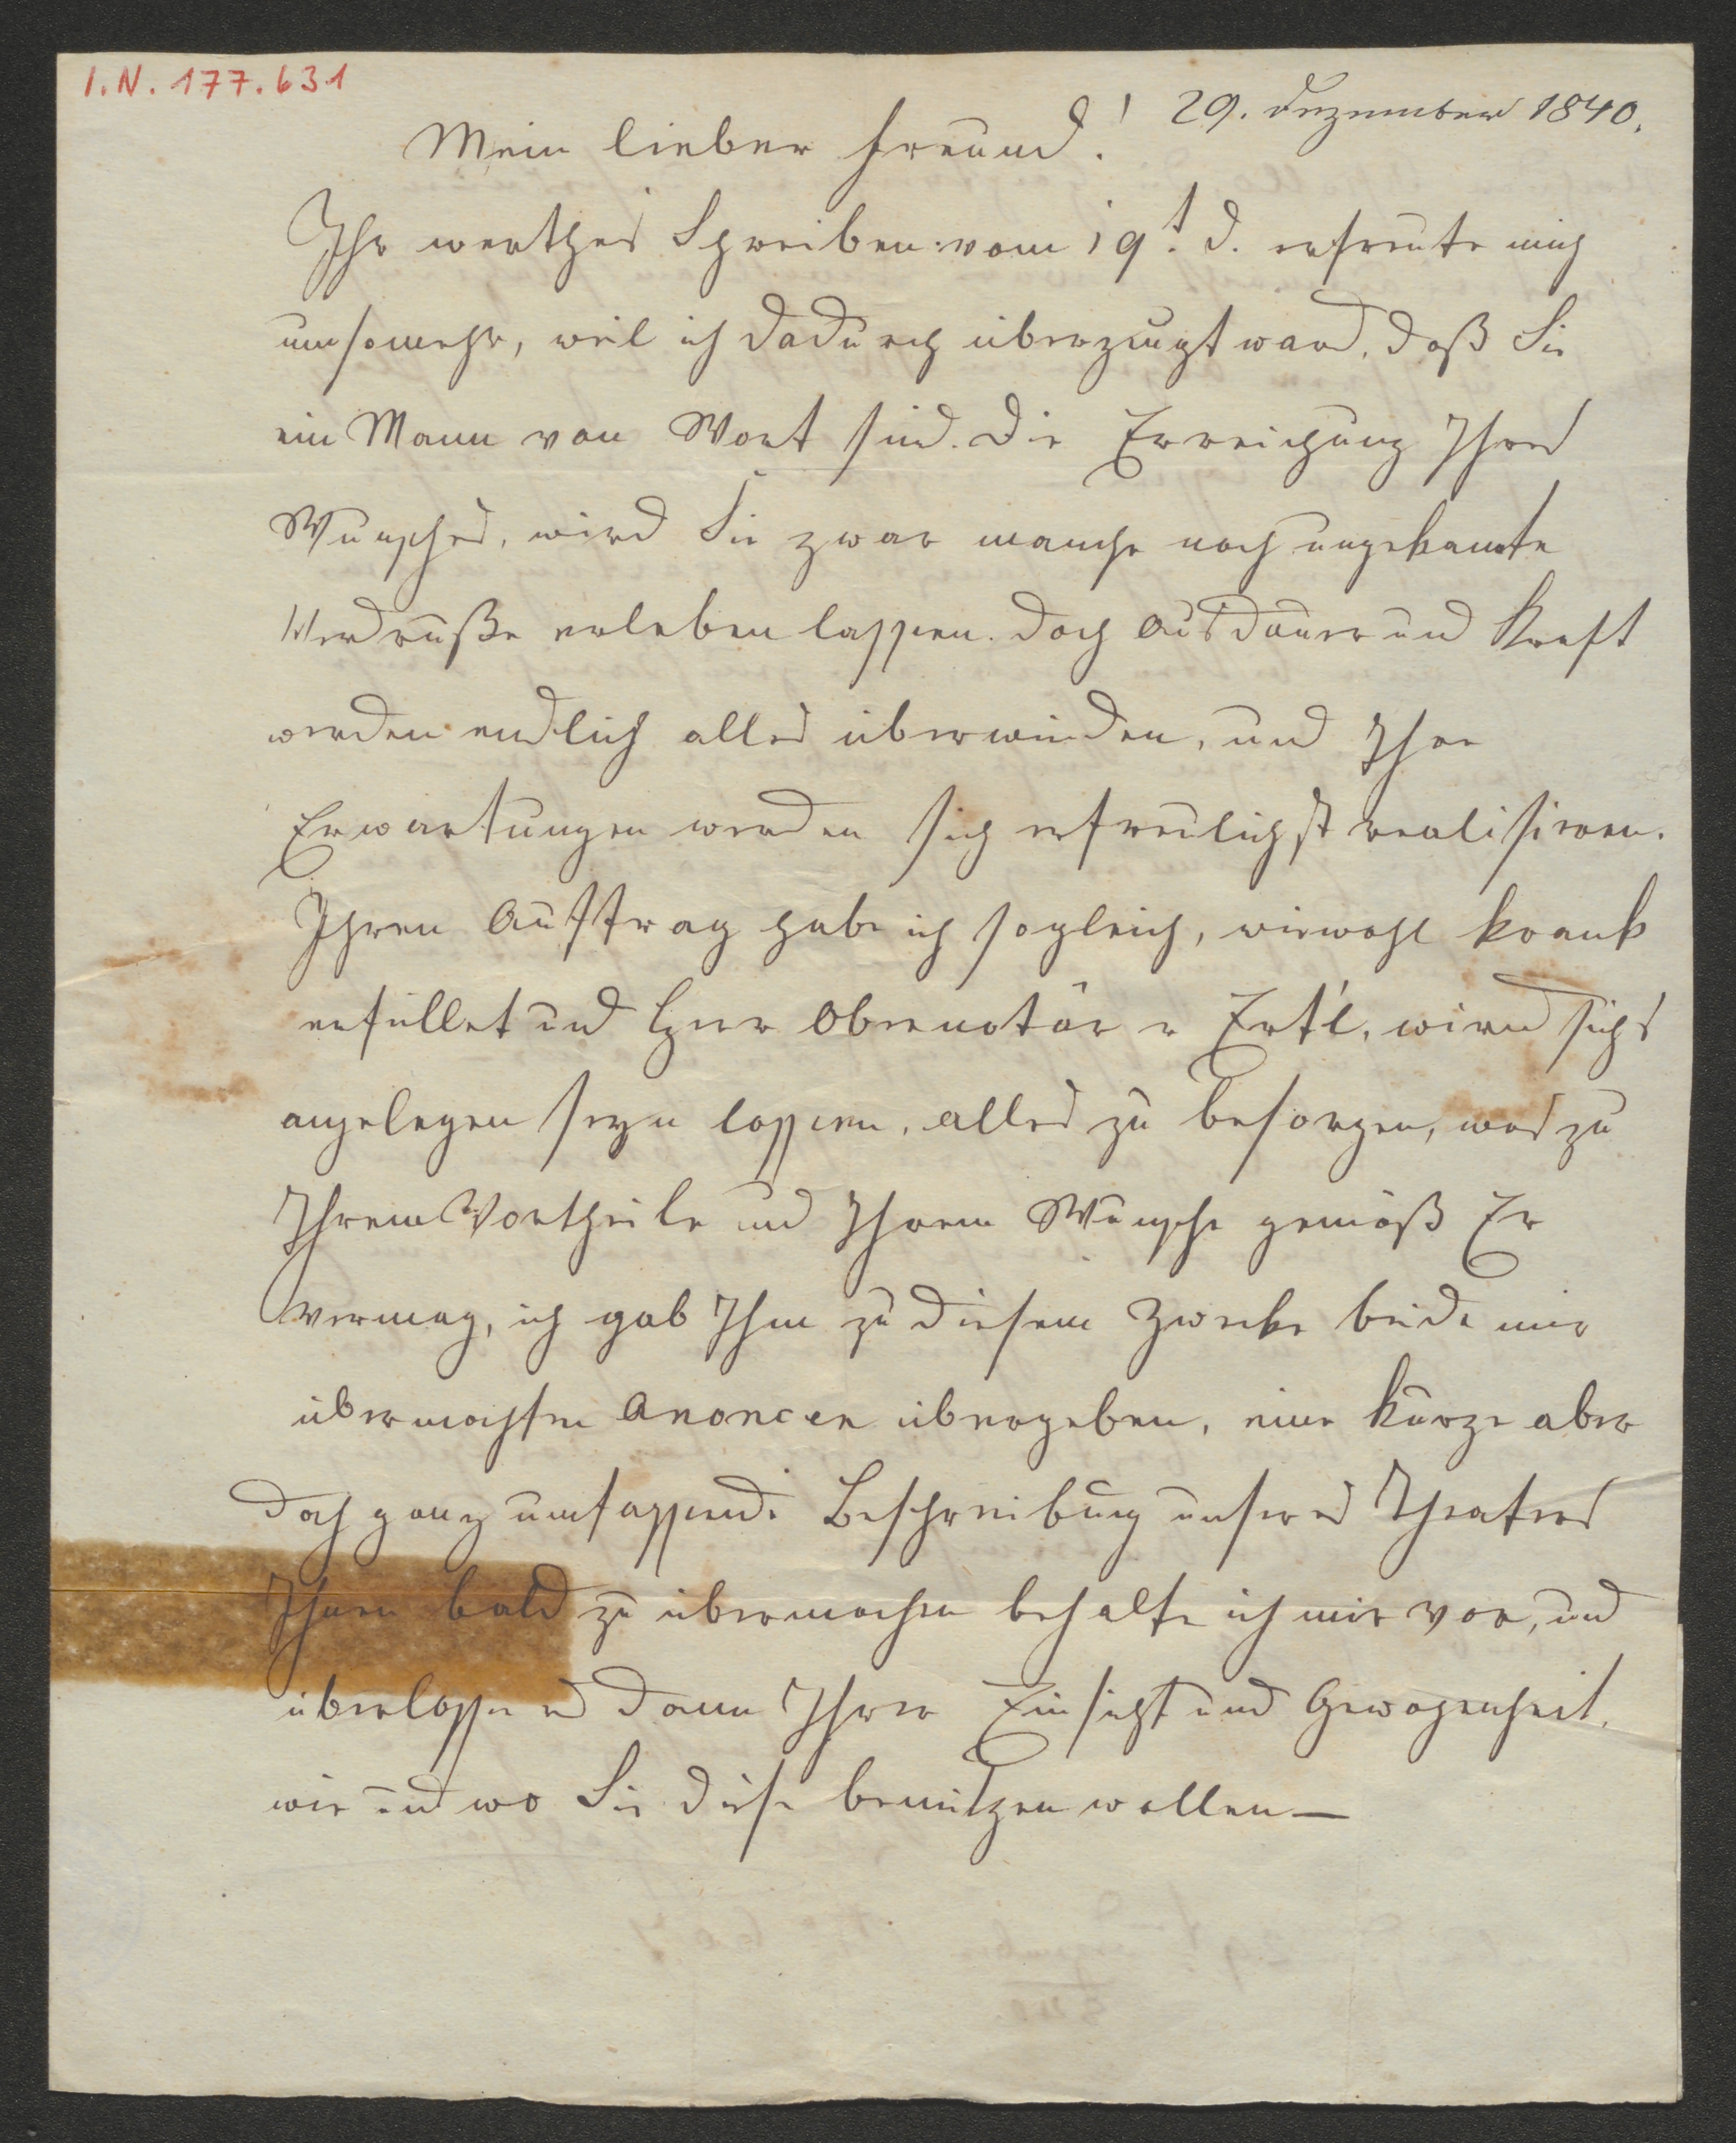 I.N. 177.631
29. Dezember 1840.
Mein lieber Freund!
Ihr werthes Schreiben vom 19t. d. erfreute mich
umsomehr, weil ich dadurch überzeugt ward, daß Sie
ein Mann von Wort sind. Die Erreichung Ihres
Wunsches, wird Sie zwar manche noch ungekannte
Verdrüße erleben lassen. Doch Ausdauer und Kraft
werden endlich alles überwinden, und Ihre
Erwartungen werden sich erfreulichst realisiren.
Ihren Auftrag habe ich sogleich, wiewohl krank
erfüllet und Herr Obernotär v Ertl, wird sichs
angelegen seyn lassen, alles zu besorgen, was zu
Ihrem Vortheile und Ihrem Wunsche gemäß Er
vermag, ich gab Ihm zu diesem Zwecke beide mir
übermachten Anoncen übergeben, eine kurze aber
doch ganz umfassende Beschreibung unseres Theaters
Ihnen bald zu übermachen behalte ich mir vor, und
überlasse es dann Ihrer Einsicht und Gewogenheit,
wie und wo Sie diese benützen wollen —